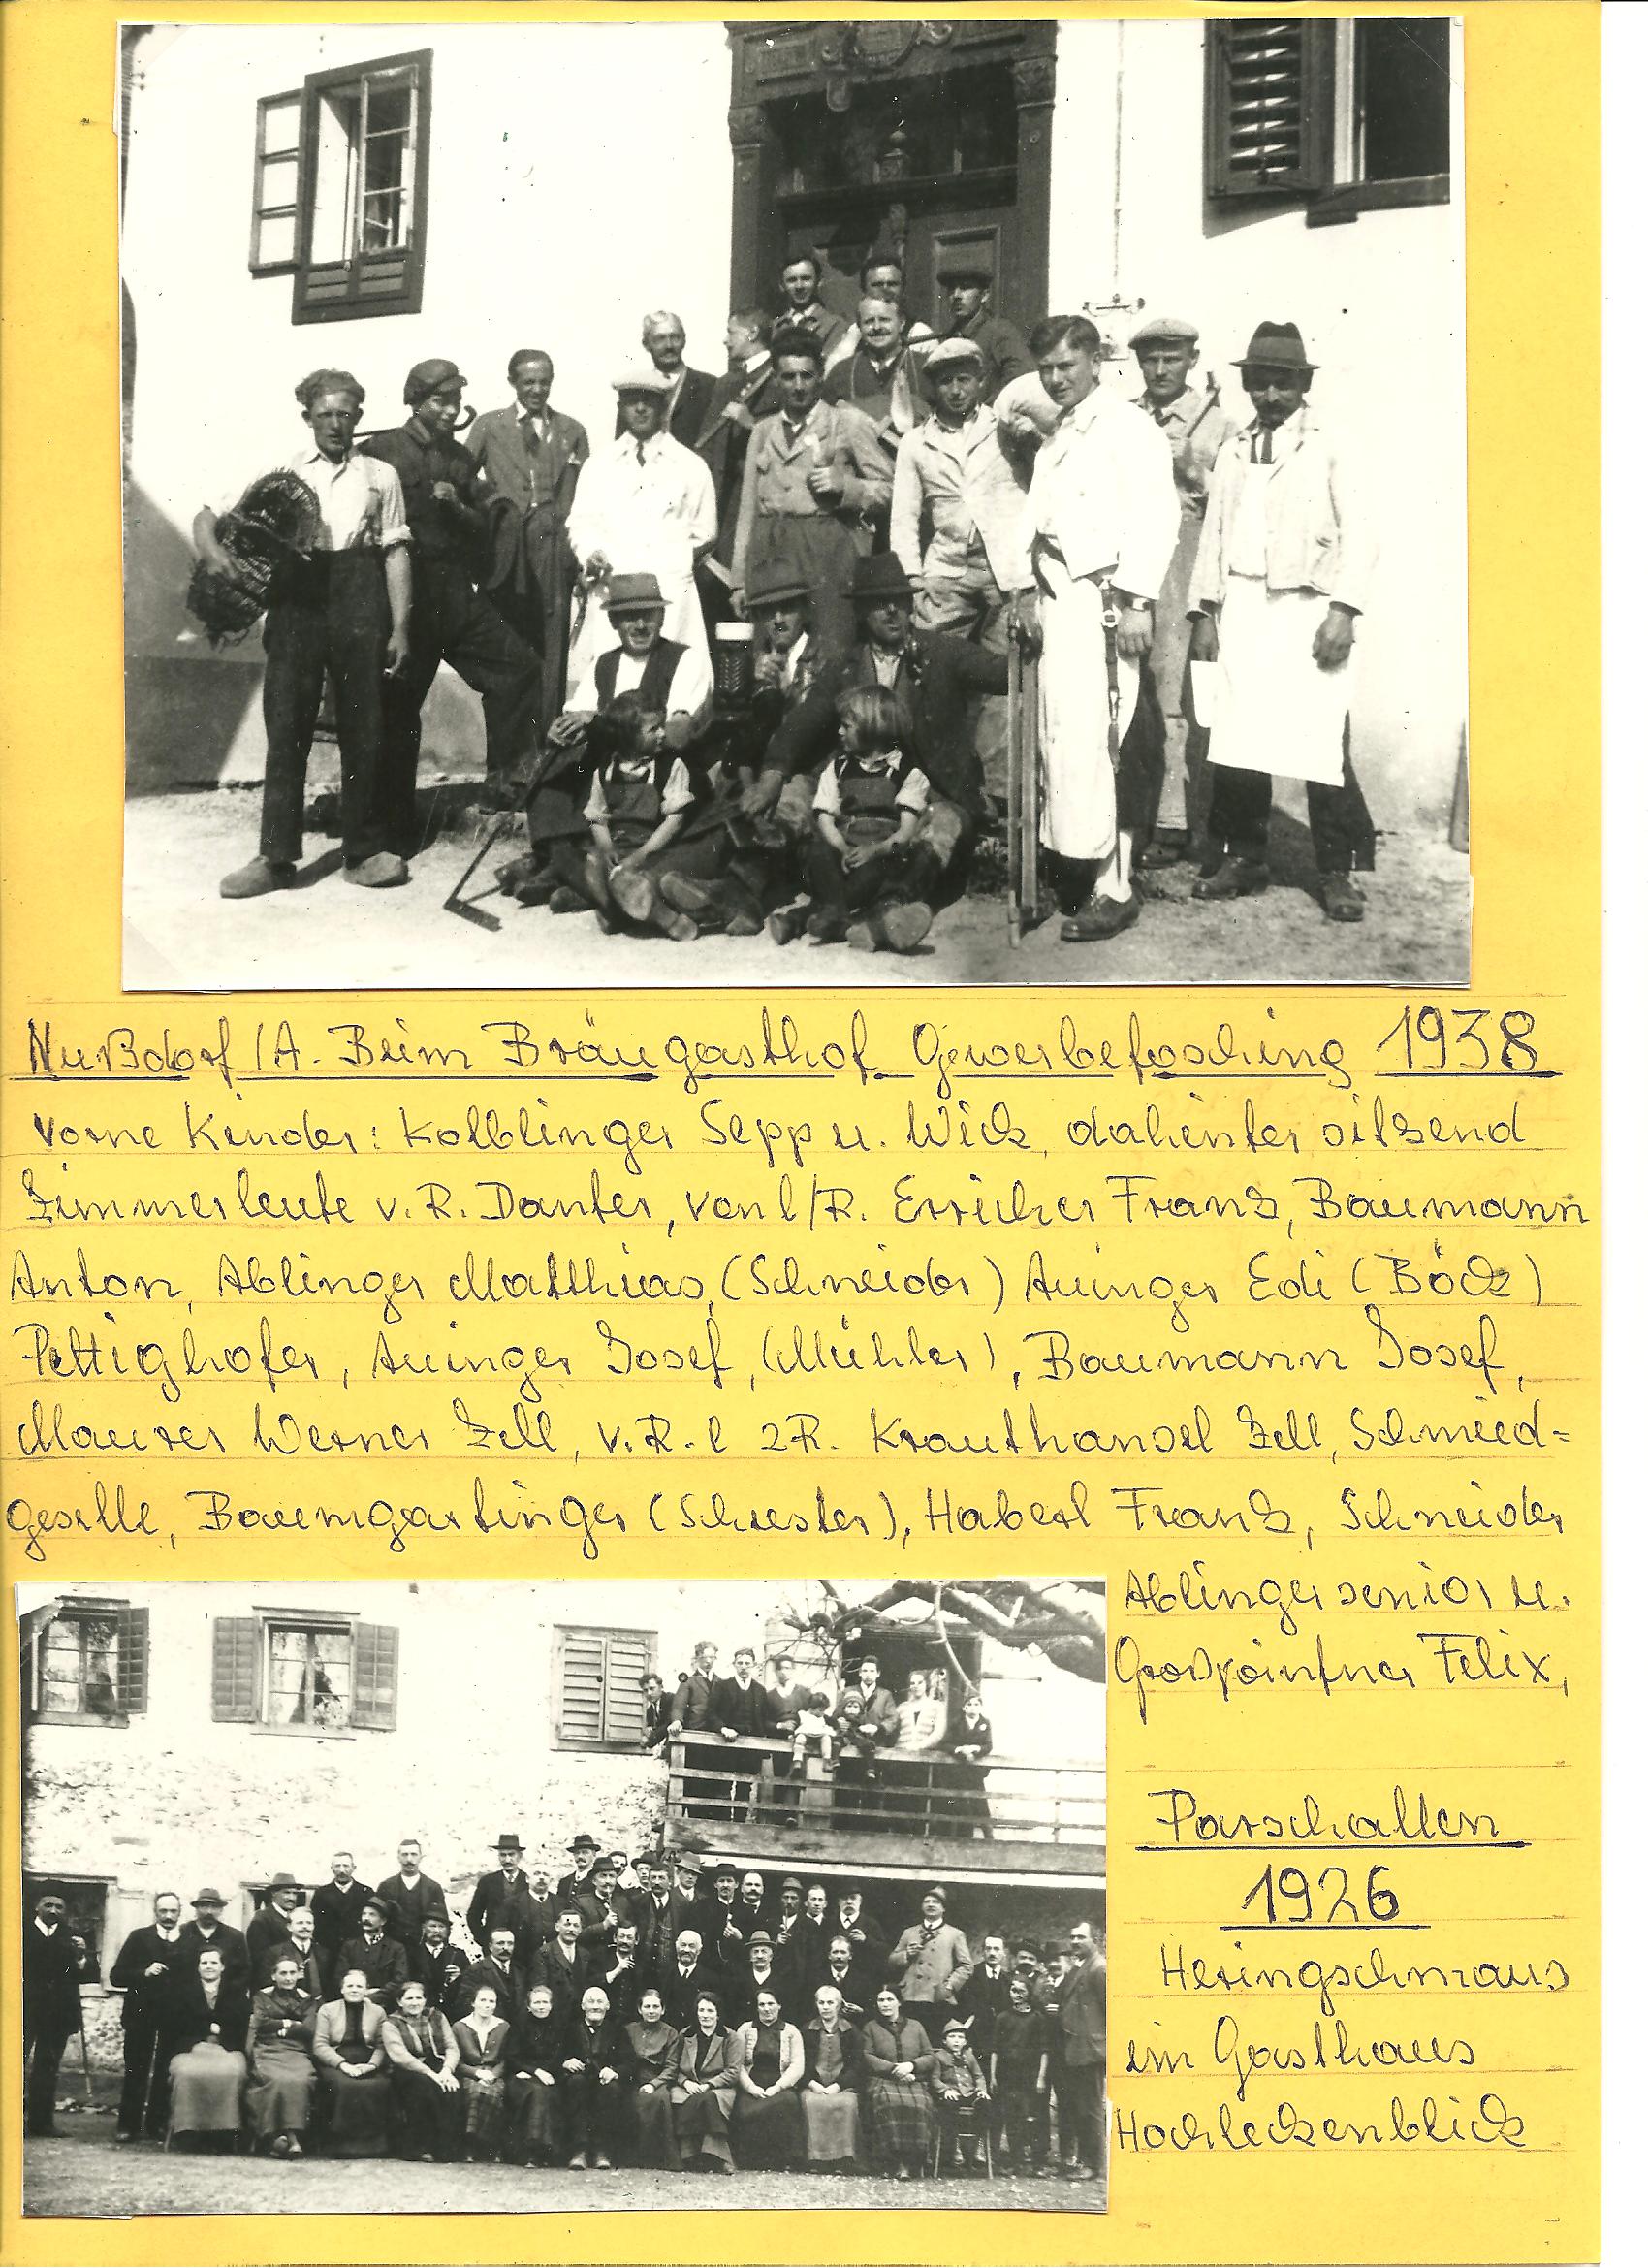 Nußdorf/A. Beim Bräugasthof Gewerbefasching 1938
vorne Kinder: Kolblinger Sepp u. Wick, dahinter sitzend
Zimmerleute v. R. Danter, von l/R. Erricher Franz, Baumann
Anton, Ablinger Matthias, (Schneider) Auinger Edi (Böck)
Pettighofer, Auinger Josef, (Mühler), Baumann Josef,
Maurer Werner Zell, v.R.l 2R. Krauthansl Zell, Schmied=
geselle, Baumgartinger (Schuster), Haberl Franz, Schneider
Ablinger senior u.
Großpointner Felix,
Parschallen
1926
Heringschmaus
im Gasthaus
Hochleckenblick